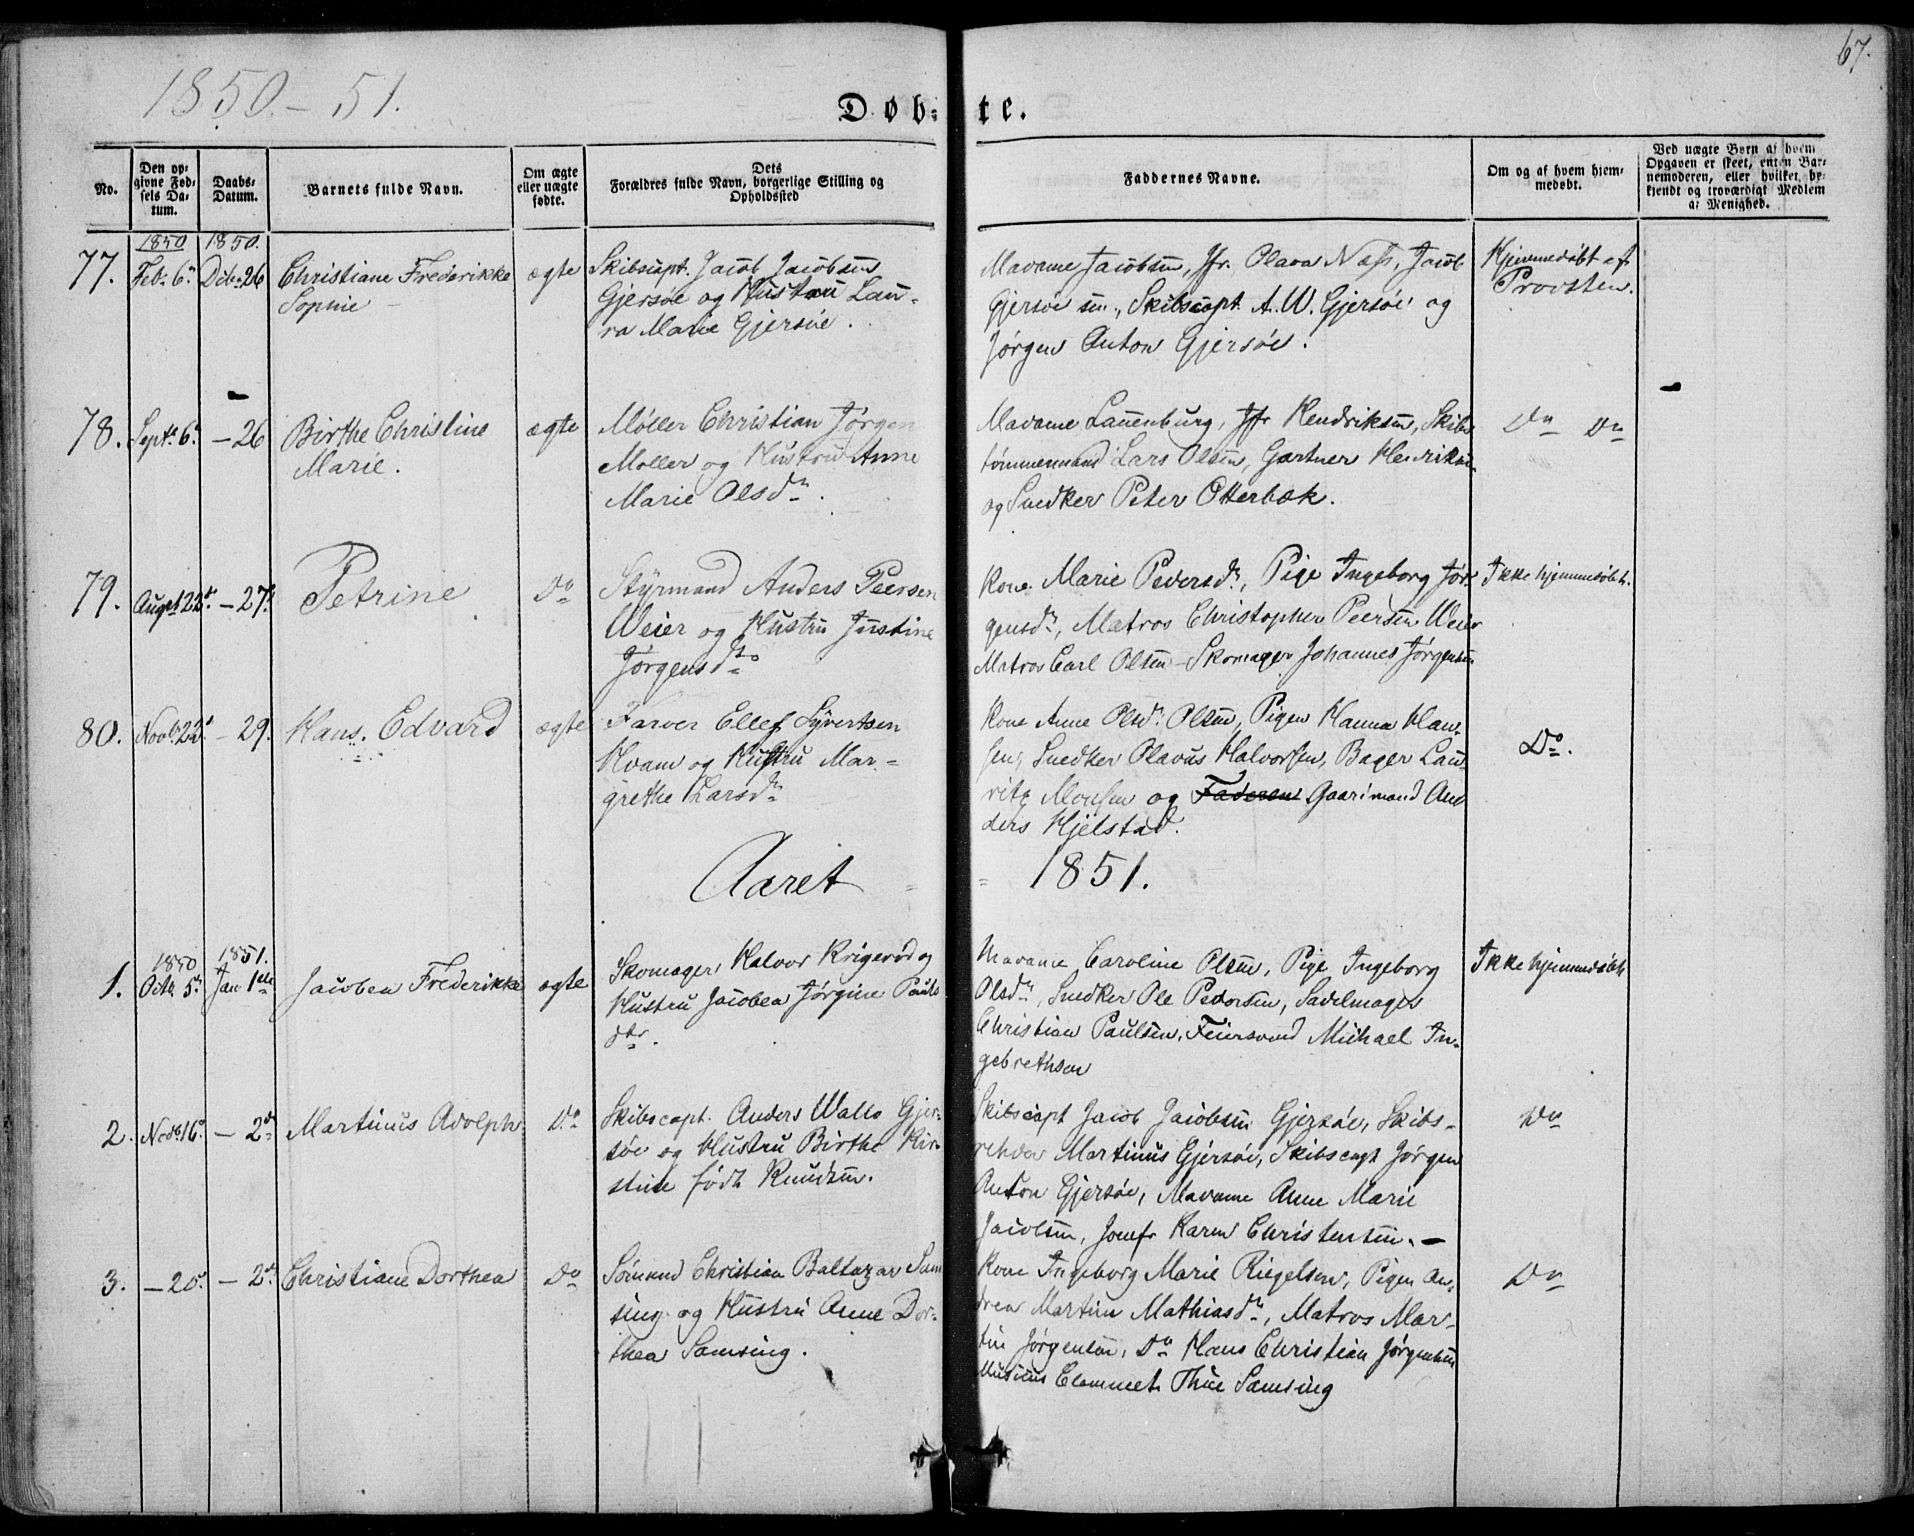 67.
1850–51.
Døb- te.
No.
Den op-
givne Fød-
sels Da-
tum.
Daabs-
Datum.
Barnets fulde Navn.
Om ægte
eller uægte
fødte.
Dets
Forældres fulde Navn, borgerlige Stilling og
Opholdssted
Faddernes Navne.
Om og af hvem hjem-
medøbt.
Ved uægte Børn af hvem
Opgaven er skeet, enten Bar-
nemoderen, eller hvilket be-
kjendt og troværdigt Medlem
af Menighed.
1850 1850.
77. Feb. 6. Dcb. 26 Christiane Frederikke
Sophie
ægte
Skibscapt. Jacob Jacobsen
Gjersøe og Hustru Lau-
ra Marie Gjersøe.
Madame Jacobsen, Jfr. Olava Næss, Jacob
Gjersøe sen., Skibscapt. A. W. Gjersøe og
Jørgen Anton Gjersøe.
Hjemmedøbt af
Provsten.
78. Septr. 6. – 26 Birthe Christine
Marie.
ægte
Møller Christian Jørgen
Møller og Hustru Anne
Marie Olsdr.
Madame Lauenburg, Jfr Hendriksen, Skibs
tømmermand Lars Olsen, Gartner Henriksen
og Snedker Peter Otterbæk.
Do Do
79. August 22. – 27. Petrine
Do
Styrmand Anders Peersen
Weier og Hustru Justine
Jørgensdr.
Kone Marie Pedersdr, Pige Ingeborg Jør-
gensdr, Matros Christopher Peersen Weier
Matros Carl Olsen – Skomager Johannes Jørgensen
Ikke hjemmedøbt.
80. Novbr. 22. – 29. Hans Edvard
ægte
Farver Ellef Syvertsen
Kvam og Hustru Mar-
grethe Larsdr.
Kone Anne Olsdr. Olsen, Pigen Hanna Han-
sen, Snedker Olavus Halvorsen, Bager Lau-
ritz Monsen og Faderen Gaardmand An
ders Hjelstad.
Do.
Aaret 1851.
1850 1851.
1. Octb. 5. Jan 1ste Jacobea Frederikke
ægte
Skomager Halvor Krigerød og
Hustru Jacobea Jørgine Pauls
dtr.
Madame Caroline Olsen, Pige Ingeborg
Olsdr, Snedker Ole Pedersen, Sadelmager
Christian Paulsen, Feiersvend Michael In-
gebrethsen
Ikke hjemmedøbt.
2. Nov. 16. – 2d. Martinus Adolph
Do
Skibscapt. Anders Wallo Gjer-
søe og Hustru Birthe Kir-
stine født Knudsen.
Skibscapt Jacob Jacobsen Gjersøe, Skibs-
rehder Martinus Gjersøe, Skibscapt Jørgen
Anton Gjersøe, Madame Anne Marie
Jacobsen, Jomfr Karen Christensen. –
Do
3. – 20. – 2d. Christiane Dorthea
Do
Sømand Christian Baltazar Sam
sing og Hustru Anne Dor-
thea Samsing.
Kone Ingeborg Marie Riegelsen, Pigen An-
drea Martine Mathiasdr, Matros Mar-
tin Jørgensen, Do Hans Christian Jørgensen
Musicus Clemmet Thue Samsing
Do